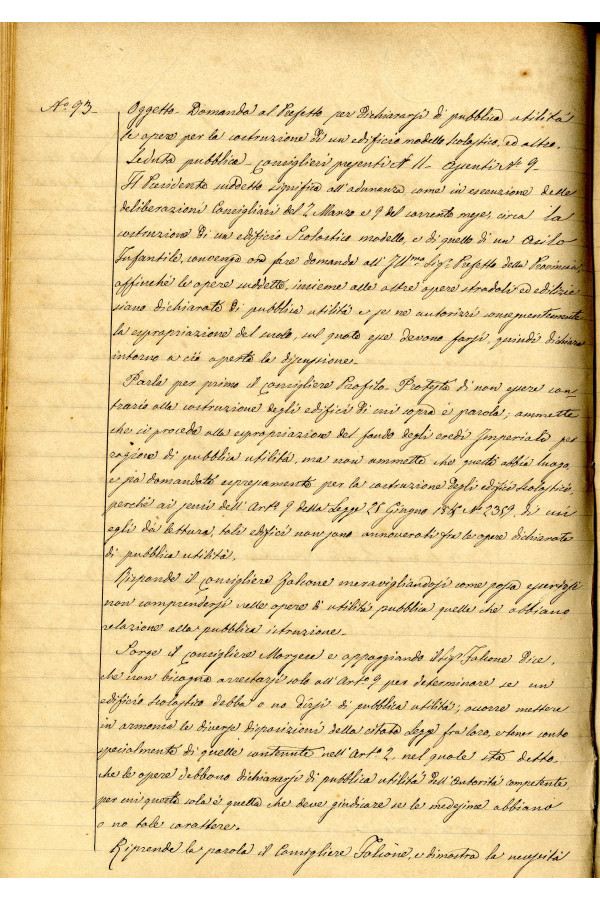 Nº 93 - Oggetto - Domanda al Prefetto per dichiararsi di pubblica utilità
le opere per la costruzione di un edificio modello scolastico, ed altro.
Seduta pubblica - Consiglieri presenti Nº 11 - assenti Nº 9 -
Il Presidente suddetto significa all'adunanza come in esecuzione delle
deliberazioni Consigliari del 2 Marzo e 9 del corrente mese, circa la
costruzione di un edificio Scolastico modello, e di quello di un Asilo
Infantile, convenga ora fare domanda all'Ill.mo Sig. Prefetto della Provincia,
affinché le opere suddette, insieme alle altre opere stradali ed edilizie
siano dichiarate di pubblica utilità e se ne autorizzi conseguentemente
la espropriazione del suolo, sul quale esse devono farsi, quindi dichiara
intorno a ciò aperta la discussione.
Parla per primo il Consigliere Profilo. Protesta di non essere con-
trario alla costruzione degli edifici di cui sopra è parola; ammette
che si proceda alla espropriazione del fondo degli eredi Imperiali per
ragione di pubblica utilità, ma non ammette che questa abbia luogo,
e sia domandata espressamente per la costruzione degli edifici scolastici,
perché ai sensi dell'Artº 9 della Legge 25 Giugno 1865 Nº 2359, di cui
egli dà lettura, tali edifici non sono annoverati fra le opere dichiarate
di pubblica utilità.
Risponde il Consigliere Falcone meravigliandosi come possa
non comprendersi nelle opere di utilità pubblica quelle che abbiano
relazione alla pubblica istruzione.
Sorge il Consigliere Margese e appoggiando il Sig. Falcone dice,
che non bisogna arrestarsi solo all'Artº 9 per determinare se un
edificio scolastico debba o no dirsi di pubblica utilità; occorre mettere
in armonia le diverse disposizioni della citata Legge fra loro, e tener conto
specialmente di quelle contenute nell'Artº 2, nel quale sta detto
che le opere debbono dichiararsi di pubblica utilità dell'Autorità competente,
per cui questa sola è quella che deve giudicare se le medesime abbiano
o no tale carattere.
Riprende la parola il Consigliere Falcone, e dimostra la necessità